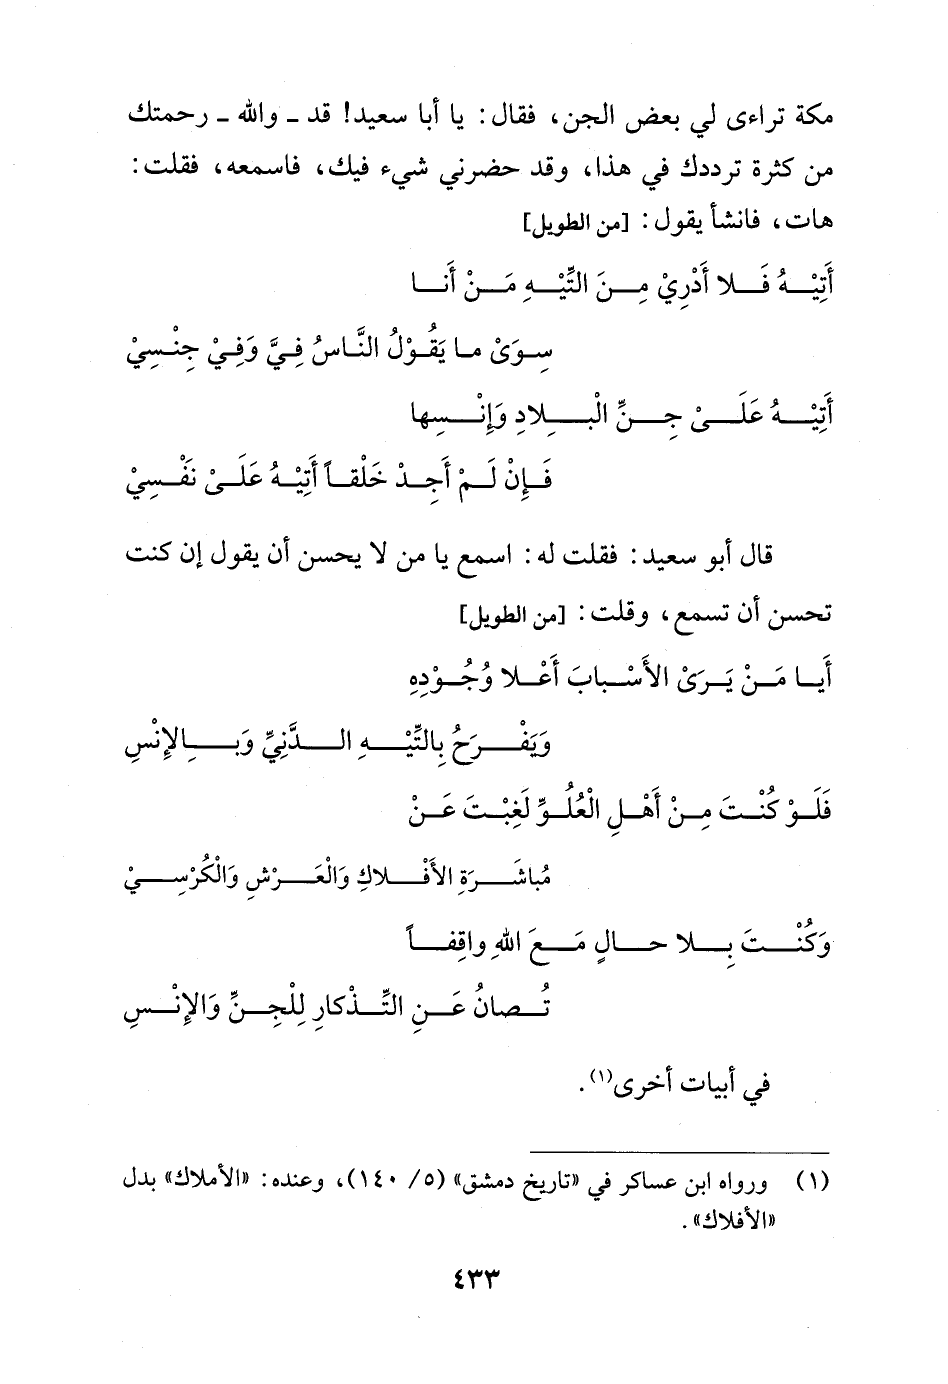 مكة تراءى لي بعض الجن، فقال: يا أبا سعيد! قد ـ والله ـ رحمتك
من كثرة ترددك في هذا، وقد حضرني شيء فيك، فاسمعه، فقلت:
هات، فانشأ يقول: [من الطويل]
أَتِيْهُ فَلا أَدْرِيْ مِنَ التِّيْهِ مَنْ أَنا
سِوَىْ ما يَقُوْلُ النَّاسُ فِيَّ وَفِيْ جِنْسِيْ
أَتِيْهُ عَلَىْ جِنِّ الْبِلادِ وَإِنْسِها
فَإِنْ لَمْ أَجِدْ خَلْقاً أَتِيْهُ عَلَىْ نَفْسِيْ
قال أبو سعيد: فقلت له: اسمع يا من لا يحسن أن يقول إن كنت
تحسن أن تسمع، وقلت: [من الطويل]
أَيا مَنْ يَرَىْ الأَسْبابَ أَعْلا وُجُوْدِهِ
وَيَفْرَحُ بِالتِّيْهِ الدَّنِيِّ وَبِالإِنْسِ
فَلَوْ كُنْتَ مِنْ أَهْلِ الْعُلُوِّ لَغِبْتَ عَنْ
مُباشَرَةِ الأَفْلاكِ وَالْعَرْشِ وَالْكُرْسِيْ
وَكُنْتَ بِلا حالٍ مَعَ اللهِ واقِفاً
تُصانُ عَنِ التِّذْكارِ لِلْجِنِّ وَالإِنْسِ
في أبيات أخرى(١).
(١) ورواه ابن عساكر في «تاريخ دمشق» (٥/ ١٤٠)، وعنده: «الأملاك» بدل
«الأفلاك».
٤٣٣